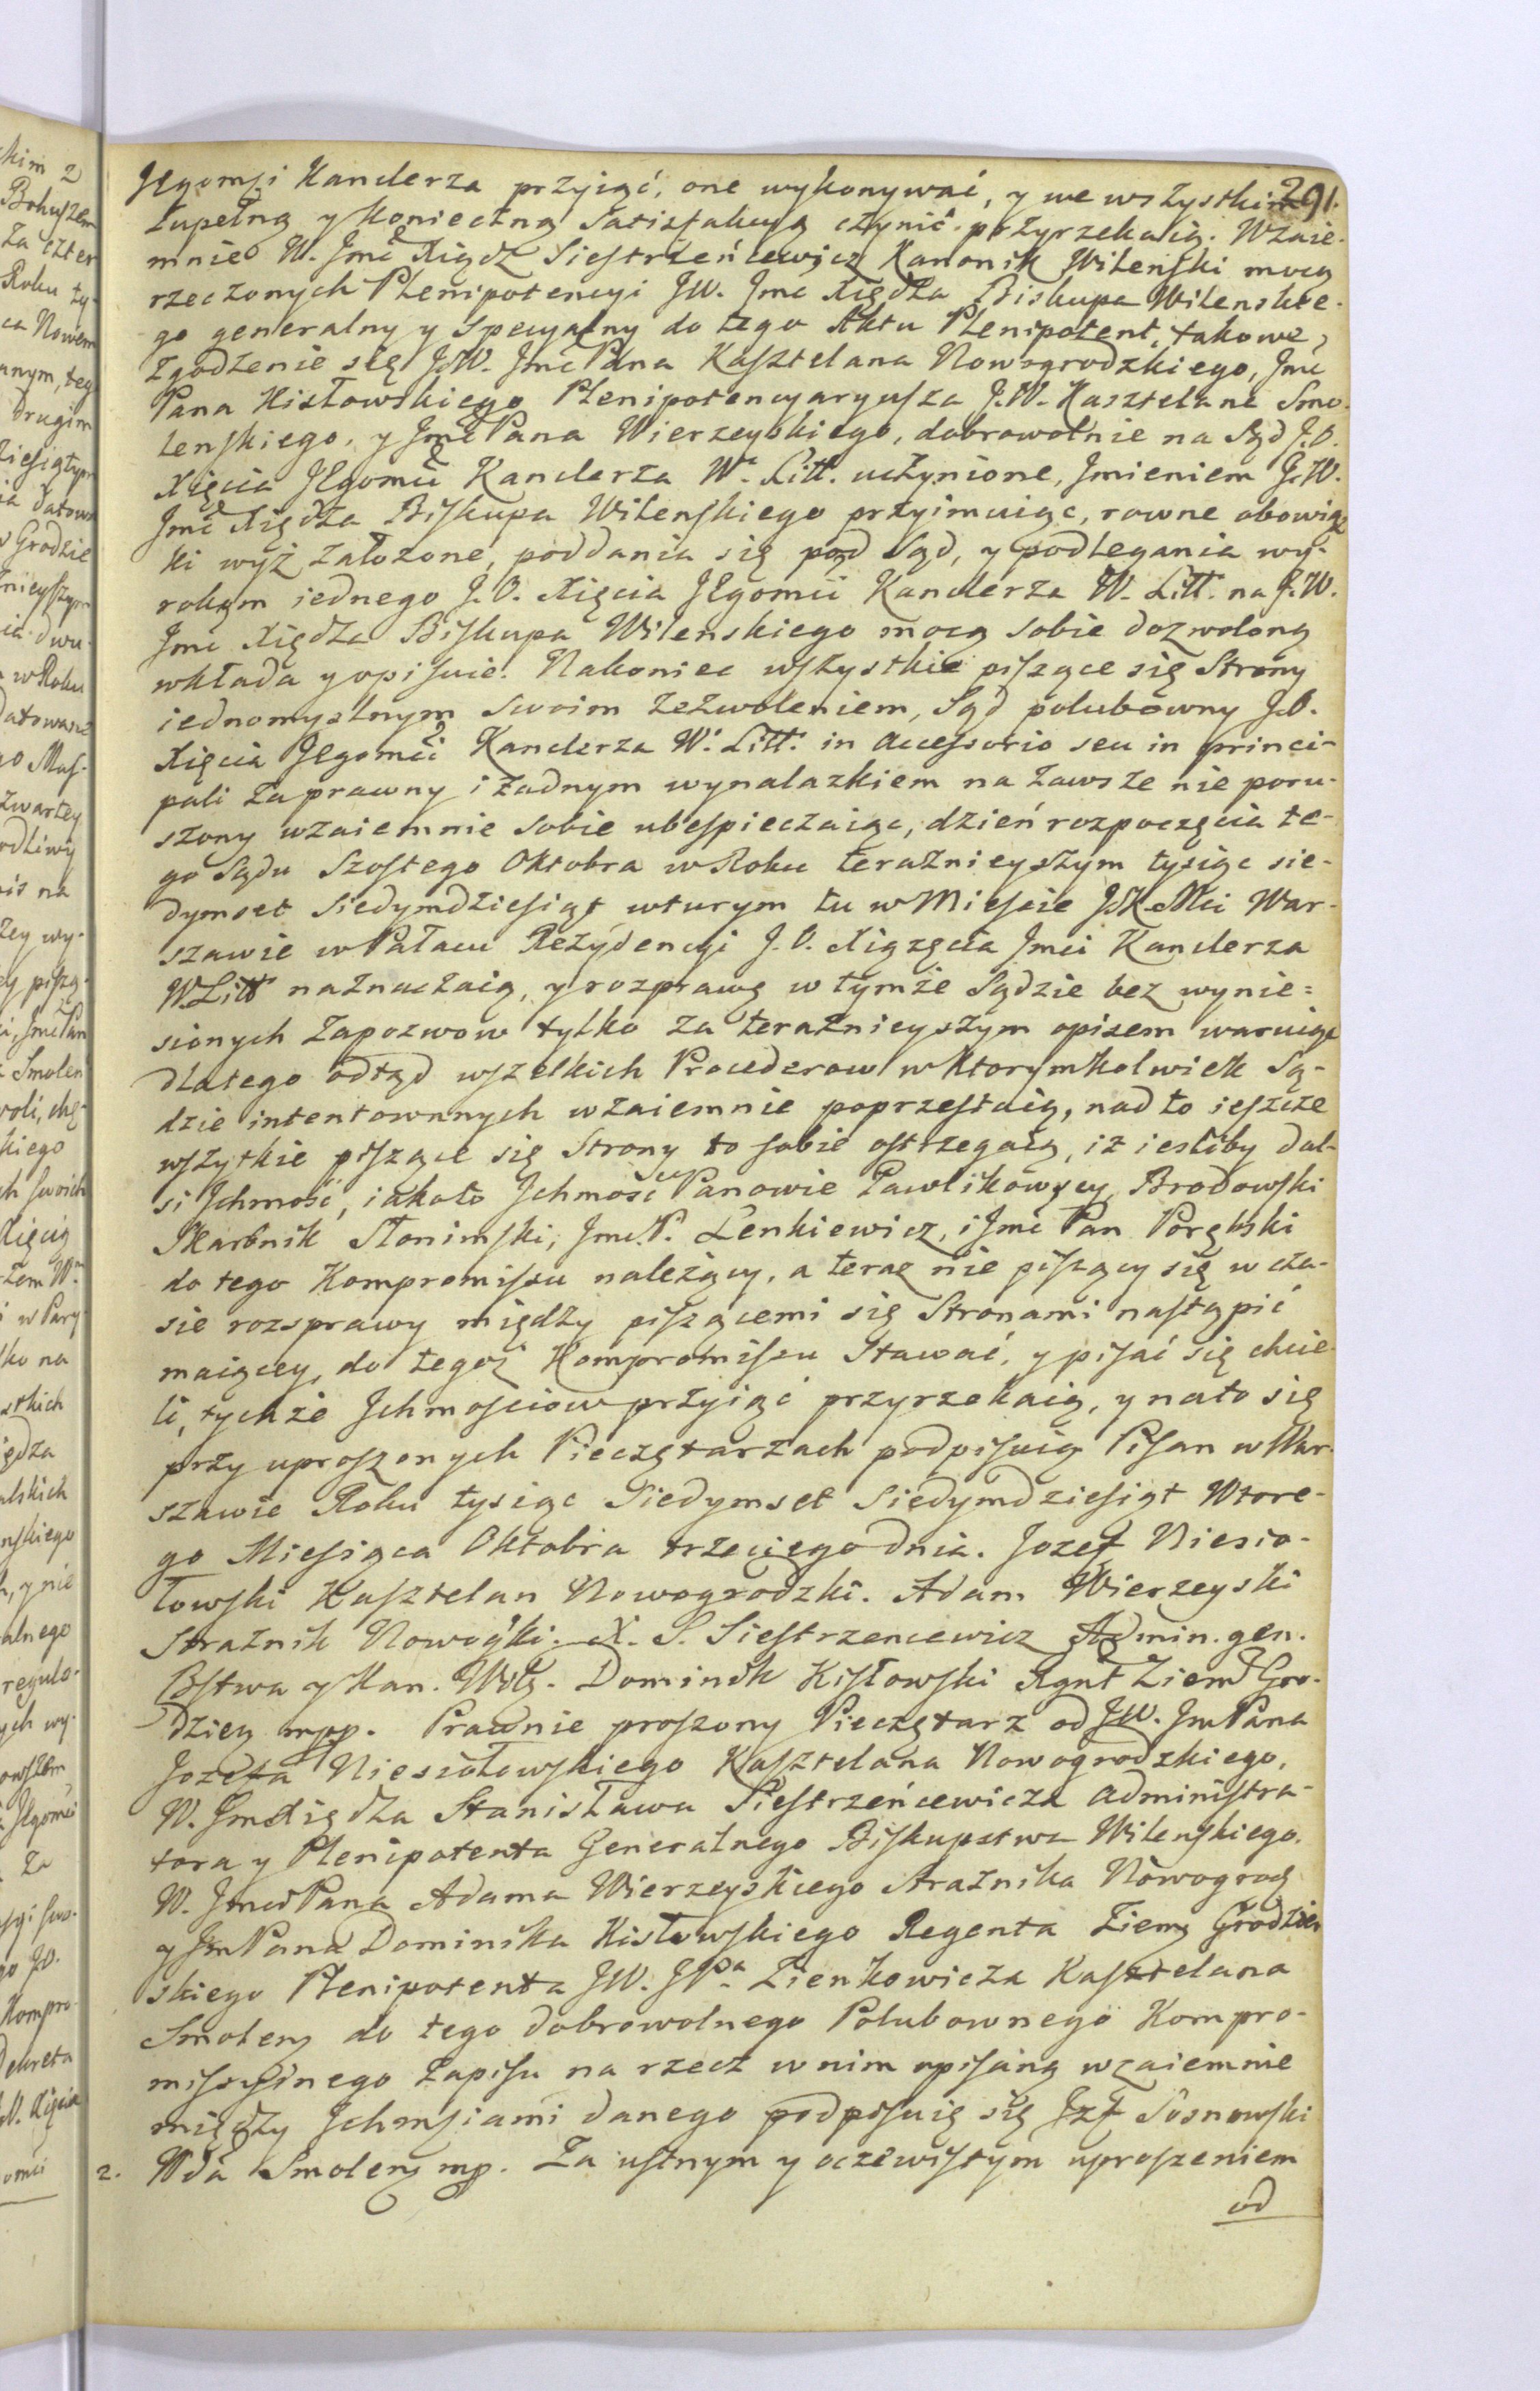 291.
Jegomsci Kanclerza przyiąć, one wykonywać, y we wszystkim
zupełną y konieczną Satisfakcyą czynić przyrzekaią. Wzaie-
mnie W. Jmć Xiądz Siestrzeńcewicz Kanonik Wilenski mocą
rzeczonych Plenipotencyi JW. Jmc Xiędza Biskupa Wilenskie-
go generalny y specyalny do tego Aktu Plenipotent, takowe
zgodzenie się J.W. Jmć Pana Kasztelana Nowogrodzkiego, Jmć
Pana Kisłowskiego Plenipotencyaryusza J.W. Kasztelana Smo-
lenskiego, y Jmć Pana Wierzeyskiego, dobrowolnie na Sąd J.O.
Xięcia Jegomci Kanclerza W. Litt. uczynione, Jmieniem J.W.
Jmć Xiędza Biskupa Wilenskiego przyimuiąc, rowne obowiąz
ki wyż założone, poddania się pod Sąd, y podlegania wy-
rokom iednego J.O. Xięcia Jegomci Kanclerza W. Litt. na J.W.
Jmc Xiędza Biskupa Wilenskiego mocą sobie dozwoloną
wkłada y opisuie. Nakoniec wszystkie piszące się Strony
iednomyslnym swoim zezwoleniem, Sąd polubowny J.O.
Xięcia Jegomci Kanclerza W. Litt. in Accessorio seu in princi-
pali za prawny i żadnym wynalazkiem na zawsze nie poru-
szony wzaiemnie sobie ubespieczaiąc, dzień rozpoczęcia te-
go Sądu Szostego Oktobra w Roku teraznieyszym tysiąc sie-
dymset siedymdziesiąt wturym tu w Miescie JKMci War-
szawie w Pałacu Rezydencyi J.O. Xiązęcia Jmci Kanclerza
W Litt naznaczaią, y rozprawę w tymże Sądzie bez wynie-
sionych zapozwow tylko za teraznieyszym opisem waruiąc
dlatego odtąd wszelkich Procederow w ktorymkolwiek Są-
dzie intentowanych wzaiemnie poprzestaią, nad to ieszcze
wszytkie piszące się Strony to sobie ostrzegaią, iż iesliby dal-
si Jchmość, iakoto Jchmość Panowie Pawlikowscy, Brodowski
Skarbnik Słonimski, Jmc. P. Lenkiewicz, i Jmć Pan Porębski
do tego Kompromissu należący, a teraz nie piszący się w cza-
sie rozsprawy między piszącemi się Stronami nastąpić
maiącey, do tegoż Kompromissu stawać, y pisać się chcie-
li, tychże Jchmościow przyiąć przyrzekaią, y nato się
przy uproszonych Pieczętarzach podpisuią Pisan w War-
szawie Roku tysiąc siedymset siedymdziesiąt wtore-
go Miesiąca Oktobra trzeciego dnia. Jozef Niesio-
łowski Kasztelan Nowogrodzki. Adam Wierzeyski
Straznik Nowogki. X. S. Siestrzencewicz Admin. gen.
Bstwa y Kan. Wilz. Dominik Kisłowski Rgnt Ziemz Gro-
dzien mpp. Prawnie proszony Pieczętarz od JW. Jm Pana
Jozefa Niesiołowskiego Kasztelana Nowogrodzkiego,
W. Jm Xiędza Stanisława Siestrzeńcewicza Administra-
tora y Plenipotenta Generalnego Biskupstwa Wilenskiego.
W. Jmci Pana Adama Wierzeyskiego Straznika Nowogrodz
y Jm Pana Dominika Kisłowskiego Regenta Ziemz Grodzien
skiego Plenipotenta JW. JPa Zienkowicza Kasztelana
Smolenz do tego dobrowolnego Polubownego Kompro-
missyinego Zapisu na rzecz w nim opisaną wzaiemnie
między Jchmściami danego podpisuię się Jzf Sosnowski
2. Wda Smolenz mp. Za ustnym y oczewistym uproszeniem
od